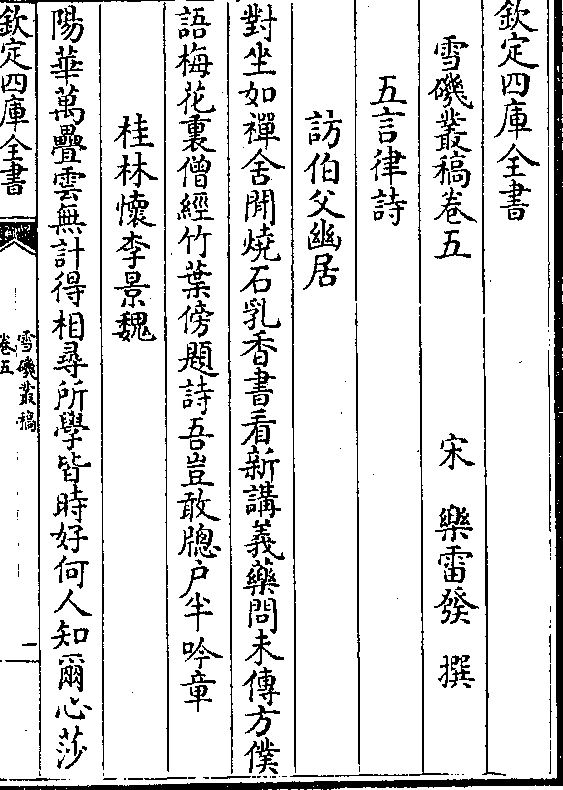 欽定四庫全書
雪磯叢稿卷五
宋 樂雷發 撰
五言律詩
訪伯父幽居
對坐如禪舍閒燒石乳香書看新講義藥問未傳方僕
語梅花裏僧經竹葉傍題詩吾豈敢牕户半吟章
桂林懷李景魏
陽華萬疊雲無計得相尋所學皆時好何人知爾心莎
欽定四庫全書
雪磯叢稿
卷五
一